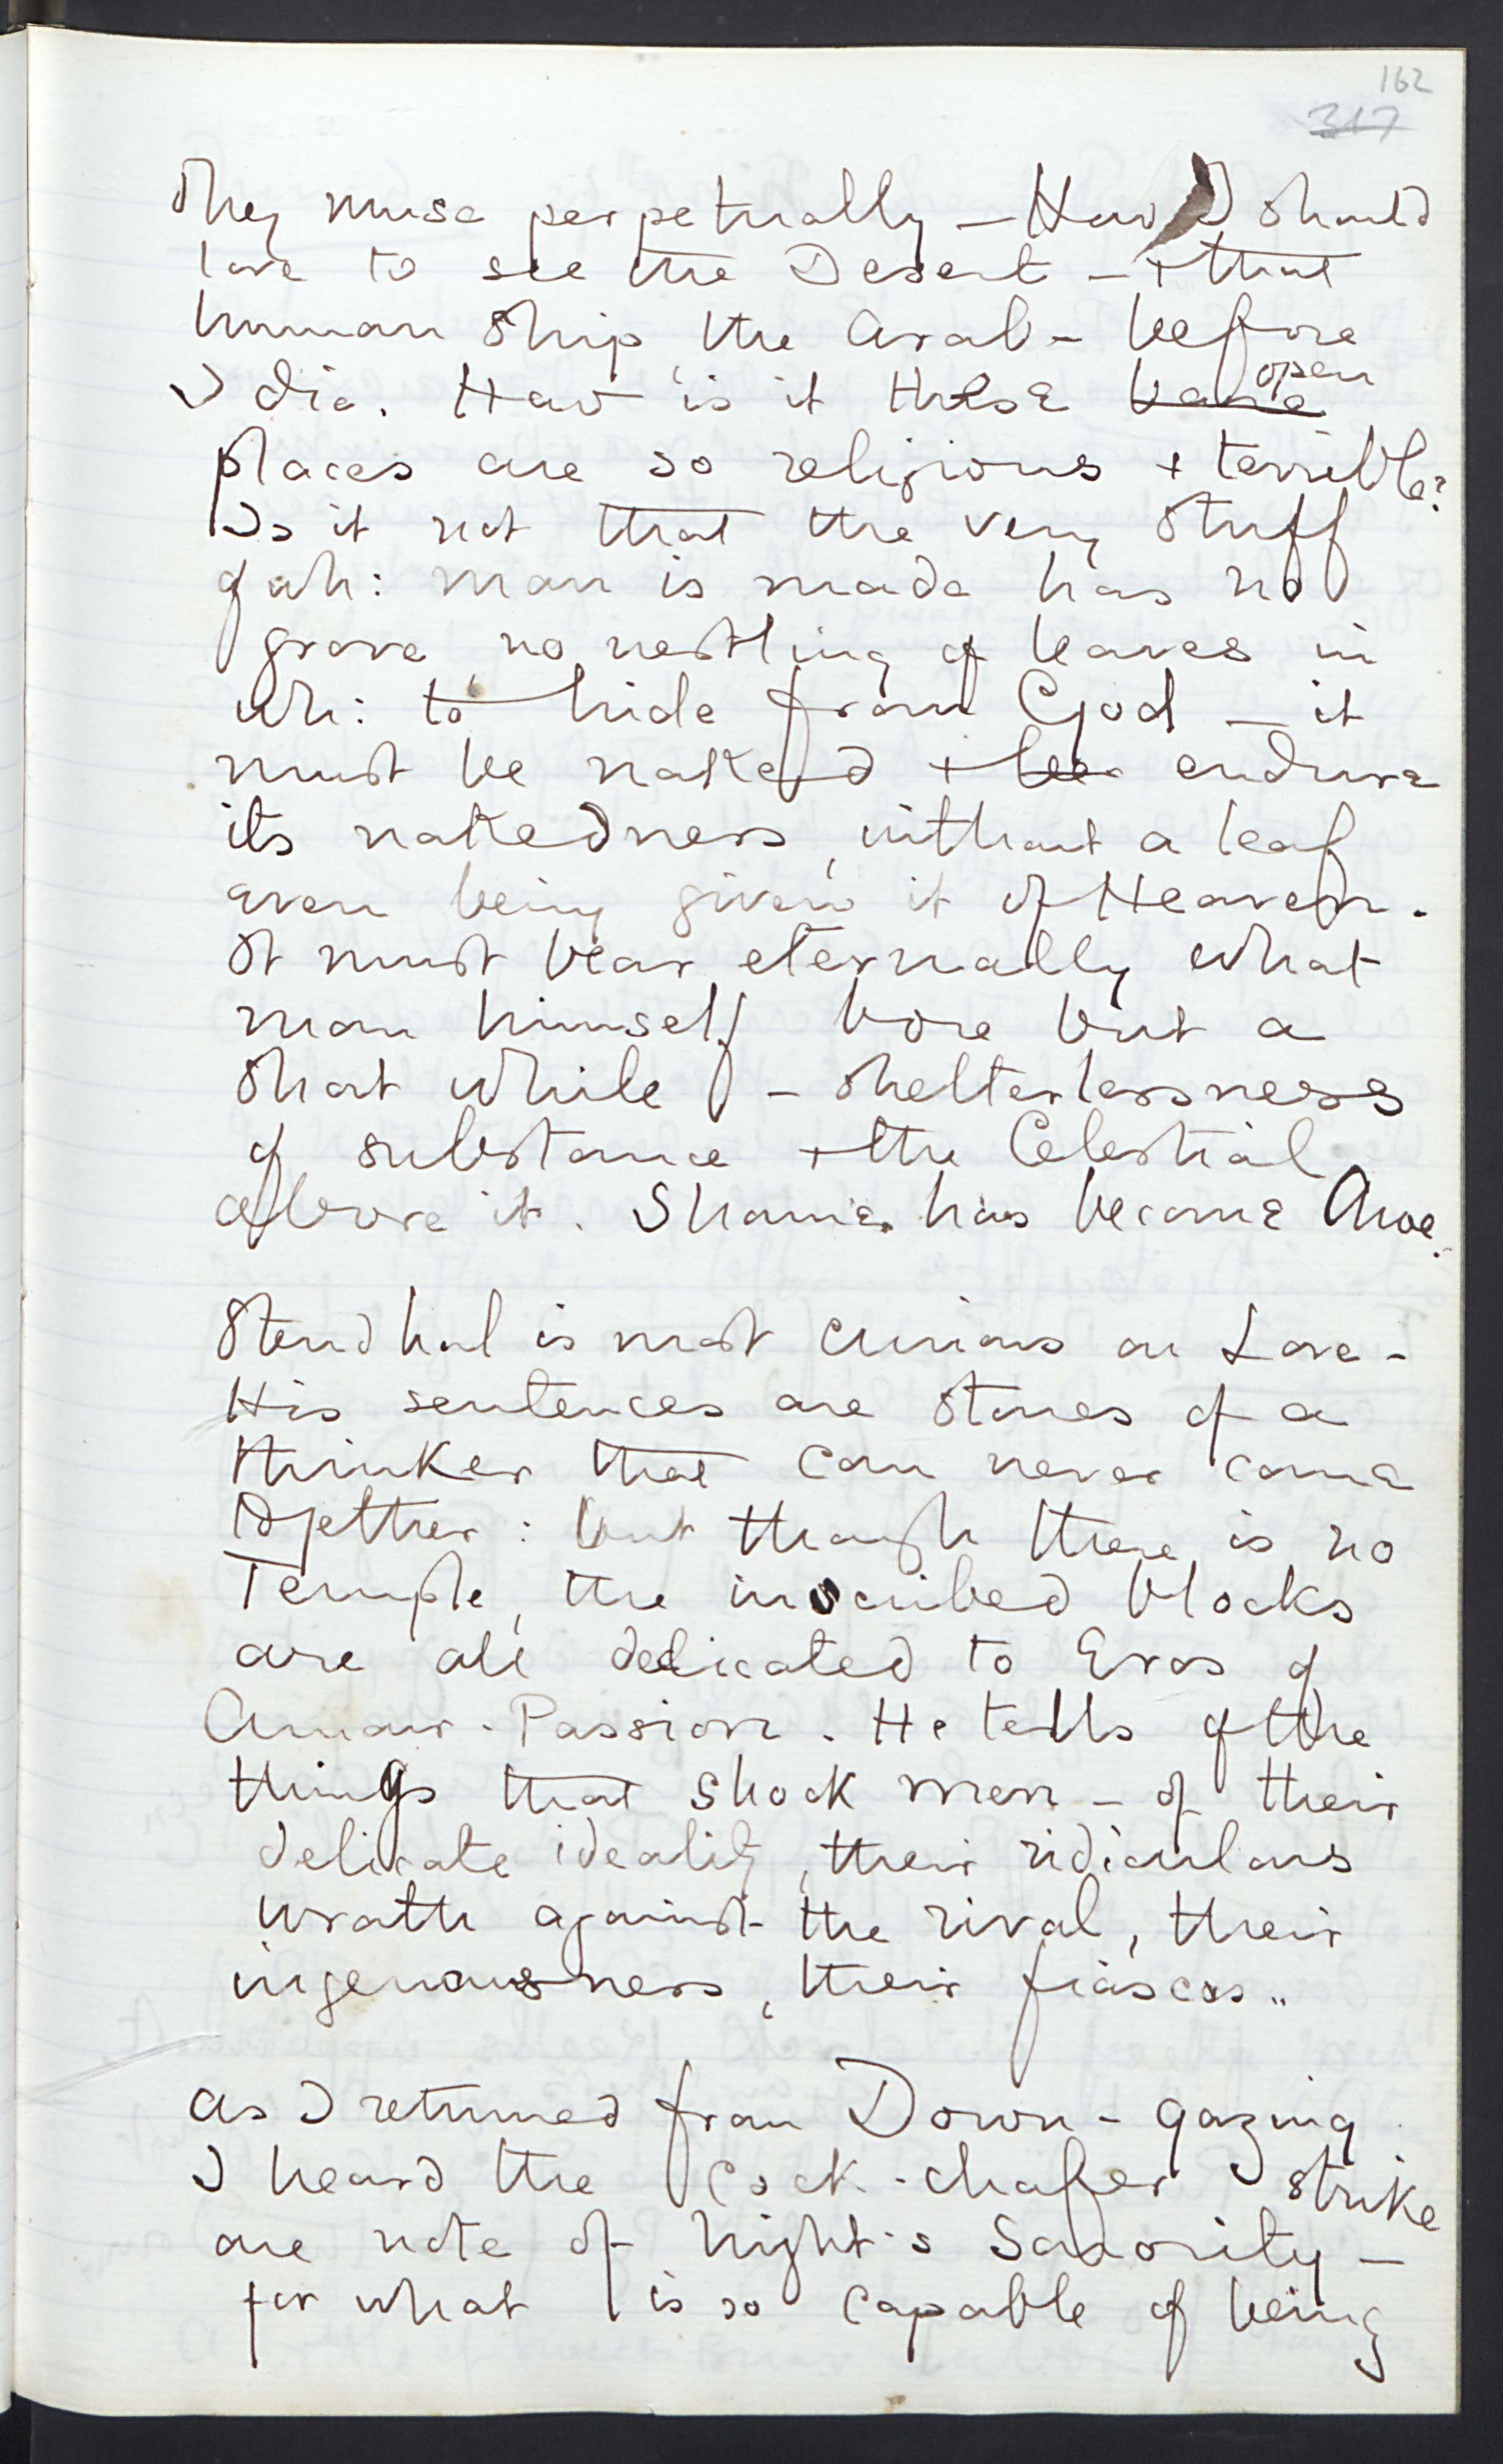 162
317
They muse perpetually – How I should
love to see the Desert – + that
human ship, the Arab – before
I die. How is it these bare open
places are so religious + terrible?
Is it not that the very stuff
of wh: man is made has no
grove, no nestling of leaves in
wh: to hide from God – it
must be naked + endure
its nakedness, without a leaf
even being given it of Heaven.
It must bear eternally what
man himself bore but a
short while – shelterlessness
of substance + the Celestial
above it. Shame has become Awe.
Stendhal is most curious on Love –
His sentences are stones of a
thinker that can never come
together: but though there is no
Temple, the inscribed blocks
are all dedicated to Eros of
Amour-Passion. He tells of the
things that shock men – of their
delicate ideality, their ridiculous
wrath against the rival, their
ingenuousness, their fiascos..
As I returned from Down-gazing
I heard the Cock-chafer strike
one note of night's Sonority –
for what is so capable of being